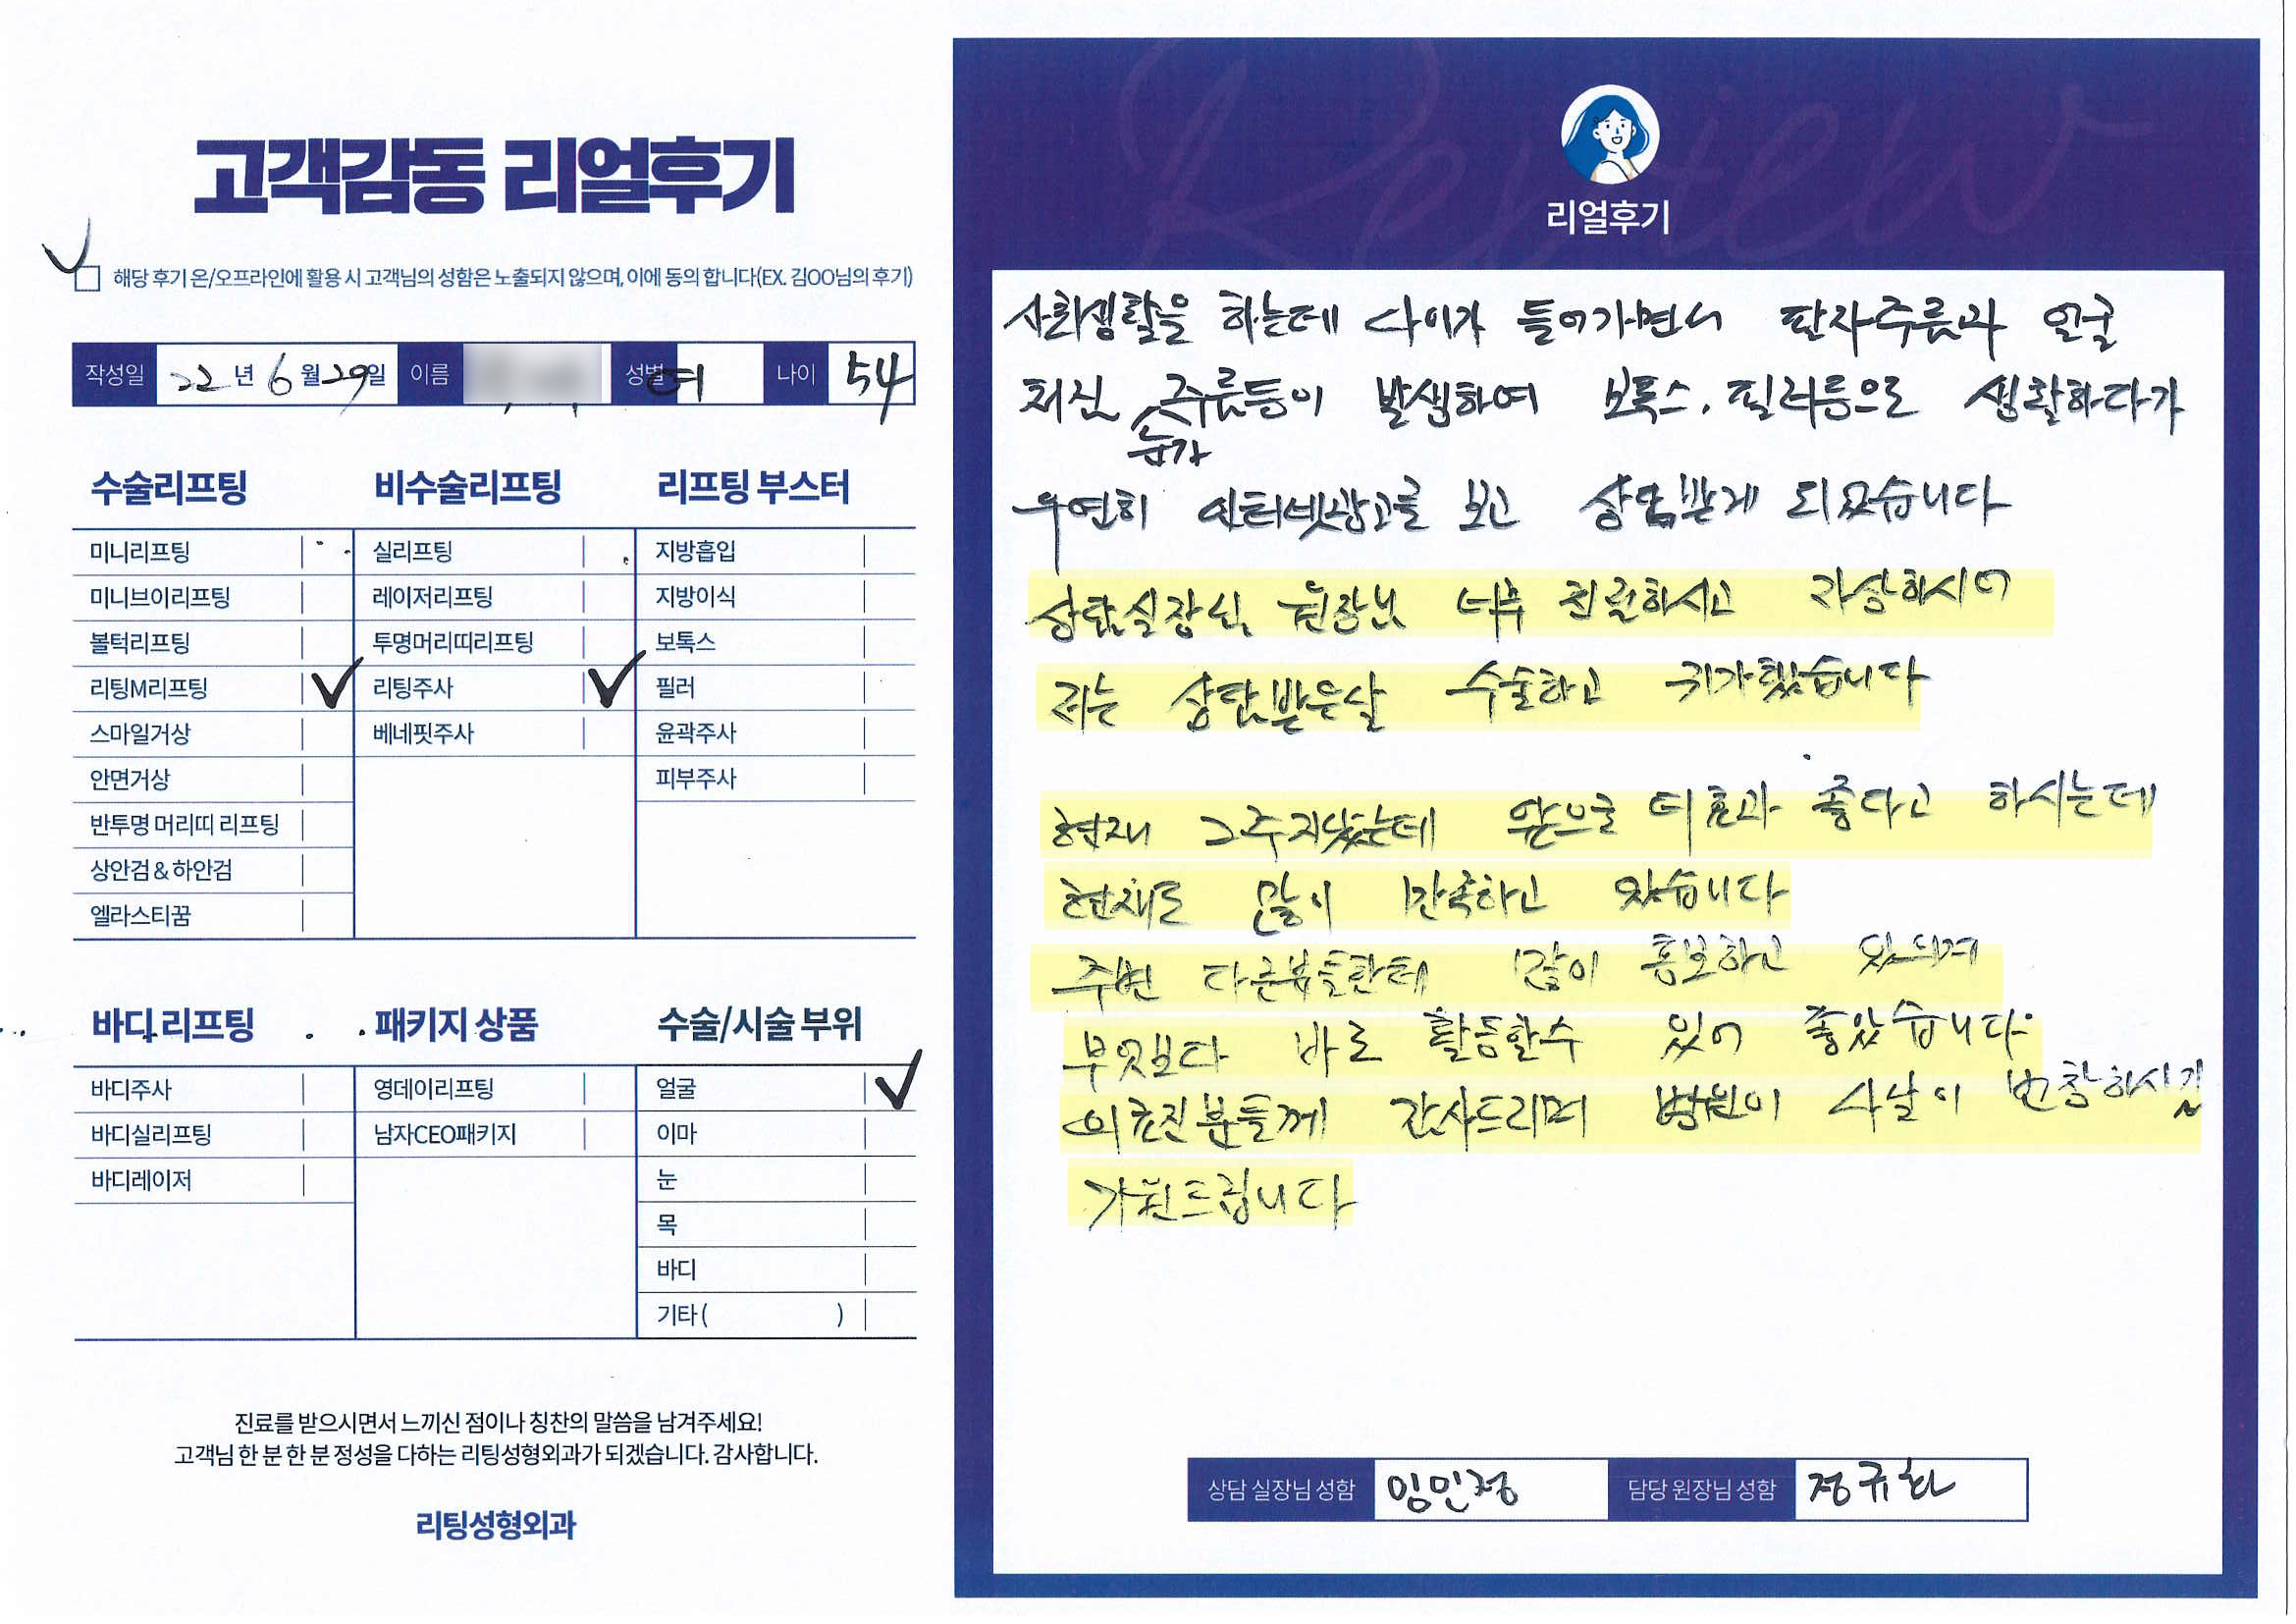 고객감동 리얼후기
해당 후기 온/오프라인에 활용 시 고객님의 성함은 노출되지 않으며, 이에 동의 합니다(EX. 김OO님의 후기)
작성일 22년 6월 29일 이름 성별 여 나이 54
수술리프팅
미니리프팅
미니브이리프팅
볼턱리프팅
리팅M리프팅 ✓
스마일거상
안면거상
반투명 머리띠 리프팅
상안검 & 하안검
엘라스티꿈
비수술리프팅
실리프팅
레이저리프팅
투명머리띠리프팅
리팅주사 ✓
베네핏주사
리프팅 부스터
지방흡입
지방이식
보톡스
필러
윤곽주사
피부주사
바디 리프팅
바디주사
바디실리프팅
바디레이저
패키지 상품
영데이리프팅
남자CEO패키지
수술/시술 부위
얼굴 ✓
이마
눈
목
바디
기타 ( )
진료를 받으시면서 느끼신 점이나 칭찬의 말씀을 남겨주세요!
고객님 한 분 한 분 정성을 다하는 리팅성형외과가 되겠습니다. 감사합니다.
리팅성형외과
Review
리얼후기
사회생활을 하는데 나이가 들어가면서 팔자주름과 얼굴
처짐 눈가 주름등이 발생하여 보톡스, 필러등으로 생활하다가
우연히 인터넷광고를 보고 상담받게 되었습니다
상담실장님, 원장님 너무 친절하시고 자상하시어
저는 상담받은날 수술하고 귀가했습니다
현재 2주지났는데 앞으로 더효과 좋다고 하시는데
현재도 많이 만족하고 있습니다
주변 다른분들한테 많이 홍보하고 있으며
무엇보다 바로 활동할수 있어 좋았습니다.
의료진분들께 감사드리며 병원이 나날이 번창하시길
기원드립니다
상담 실장님 성함 임민정 담당 원장님 성함 정규화